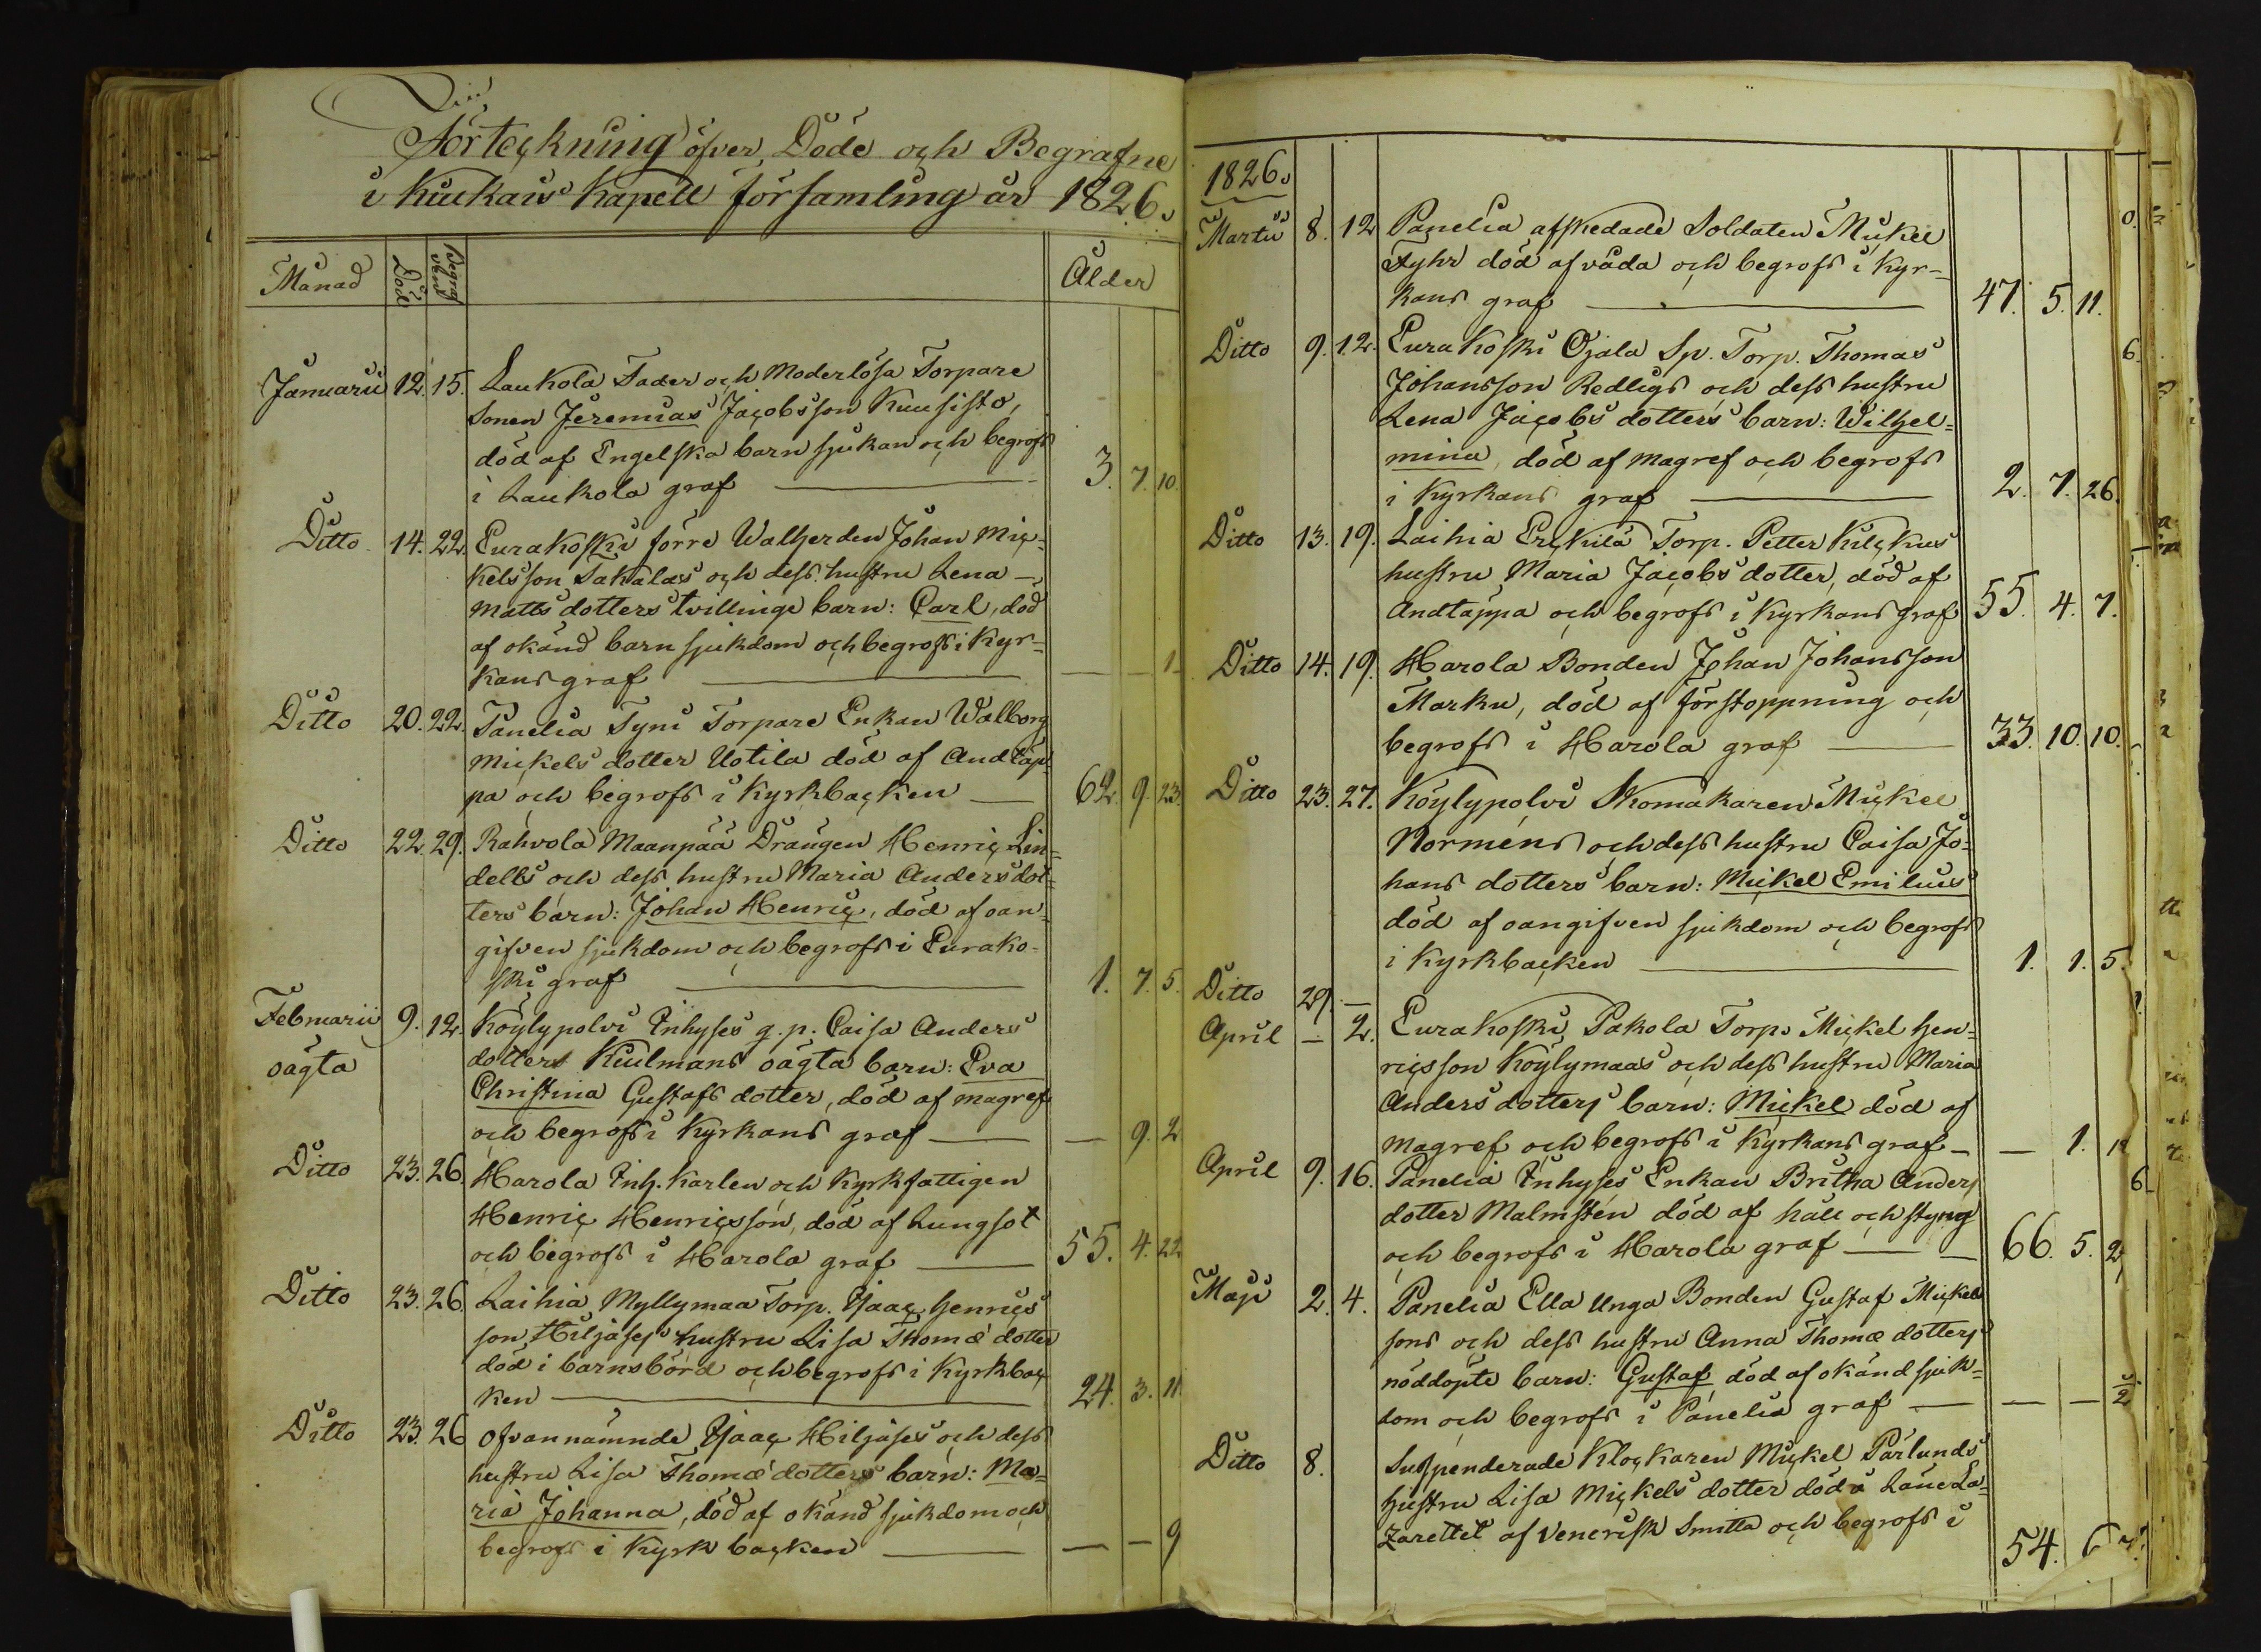 Förteckning öfver Döde och Begrafne
i Kiukais Kapell församling år 1826.
Månad Död Begraf ven Ålder
Januarii 12. 15. Laukola Fader och Moderlösa Torpare
Sonen Jeremias Jacobsson Kuusisto,
död af Engelska barn sjukan och begrofs
i Laukola graf — 3. 7. 10.
Ditto 14. 22. Eurakoski förre Walherden Johan Mic-
kelsson Sakalas och dess hustru Lena
Matts dotters tvillinge barn: Carl, död
af okänd barn sjukdom och begrofs i Kyr-
kans graf — — — 1
Ditto 20. 22. Panelia Tyni Torpare Enkan Walborg
Mickels dotter Uotila död af Andtäp-
pa och begrofs i Kyrkbacken — 62. 9. 23.
Ditto 22. 29. Rahvola Maanpää Drängen Henric Lin-
dells och dess hustru Maria Anders dot-
ters barn: Johan Henric, död af oan-
gifven sjukdom och begrofs i Eurako-
ski graf — 1. 7. 5.
Februarii 9. 12. Köylypolvi Inhyses q. p. Caisa Anders
oägta dotters Kiulmans oägta barn: Eva
Christina Gustafs dotter, död af magref
och begrofs i Kyrkans graf — — 9. 2
Ditto 23. 26. Harola Inh. Karlen och Kyrkfattigen
Henric Henricsson, död af Lungsot
och begrofs i Harola graf — 55. 4. 22
Ditto 23. 26. Laihia Myllymaa Torp. Isaac Henrics
son Hiljases hustru Lisa Thomæ dotter
död i barnsbörd och begrofs i Kyrkbac
ken — 24. 3. 11.
Ditto 23. 26 Ofvannämnde Isaac Hiljases och dess
hustru Lisa Thomæ dotters barn: Ma-
ria Johanna, död af okänd sjukdom och
begrofs i Kyrk backen — — — 9
1826.
Martii 8. 12 Panelia afskedade Soldaten Mickel
Fyhr död af våda och begrofs i Kyr-
kans graf — 47. 5. 11.
Ditto 9. 12. Eurakoski Ojala Sp. Torp. Thomas
Johansson Redligs och dess hustru
Lena Jacobs dotters barn: Wilhel-
mina, död af magref och begrofs
i Kyrkans graf — 2. 7. 26.
Ditto 13. 19. Laihia Erckilä Torp. Petter Kilckus
hustru Maria Jacobs dotter, död af
Andtäppa och begrofs i Kyrkans graf 55. 4. 7.
Ditto 14. 19. Harola Bonden Johan Johansson
Marku, död af förstoppning och
begrofs i Harola graf — 33. 10. 10.
Ditto 23. 27. Köylypolvi Skomakaren Mickel
Norméns och dess hustru Caisa Jo-
hans dotters barn: Mickel Emilius
död af oangifven sjukdom och begrofs
i Kyrkbacken — 1. 1. 5.
Ditto 29. —
April — 2. Eurakoski Pakola Torp. Mickel Hen-
ricsson Köylymaas och dess hustru Maria
Anders dotters barn: Mickel död af
Magref och begrofs i Kyrkans graf — — 1.
April 9. 16. Panelia Inhyses Enkan Britha Anders
dotter Malmstén död af håll och styng
och begrofs i Harola graf — 66. 5. 2
Maji 2. 4. Panelia Ella Unga Bonden Gustaf Mickels
sons och dess hustru Anna Thomæ dotters
nöddöpte barn: Gustaf död af okänd sjuk-
dom och begrofs i Panelia graf — — — 1/2
Ditto 8. Suspenderade Klockaren Mickel Parlunds
hustru Lisa Mickels dotter död å Läne La-
zarettet af Venerisk Smitta och begrofs i
54. 6